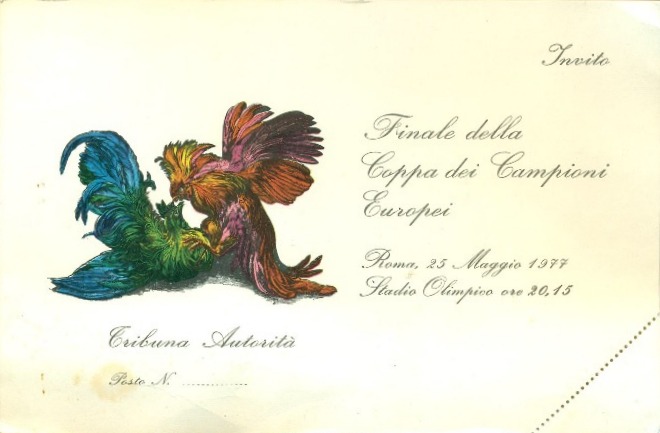 Invito
Finale della
Coppa dei Campioni
Europei
Roma, 25 Maggio 1977
Stadio Olimpico ore 20,15
Tribuna Autorità
Posto N. ..............